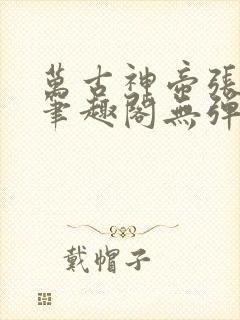 萬古神帝張
筆趣閣無彈
戴帽子